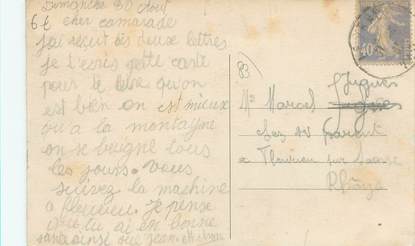 Dimanche 30 Aout
cher camarade
j'ai reçut tes deux lettres
je t'ecris cette carte
pour te dire qu'on
est bien on est mieux
ou a la montagne
on se beigne tous
les jours. Vous
suivez la machine
a Fleurieu. Je pense
que tu ai en bonne
santé ainsi que
83
Mr Marcel
chez Mr
a Fleurieu sur Saone
Rhône
40